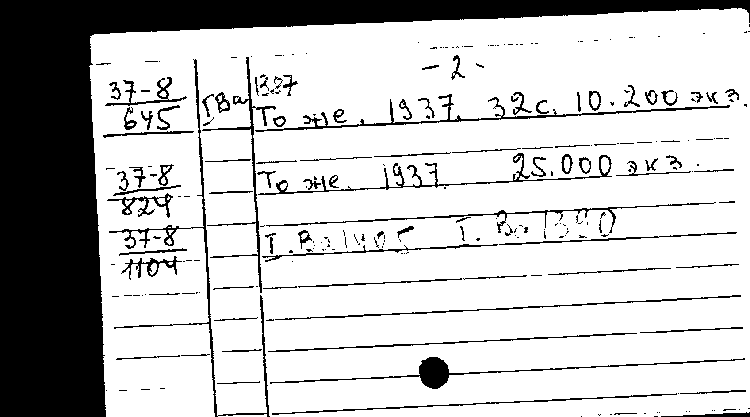 - 2 -
37-8
645
I Ba 1387
То же. 1937. 32с. 10.200 экз.
37-8
824
То же. 1937. 25.000 экз.
37-8
1104
I. Ba 1405 I. Ba 1390